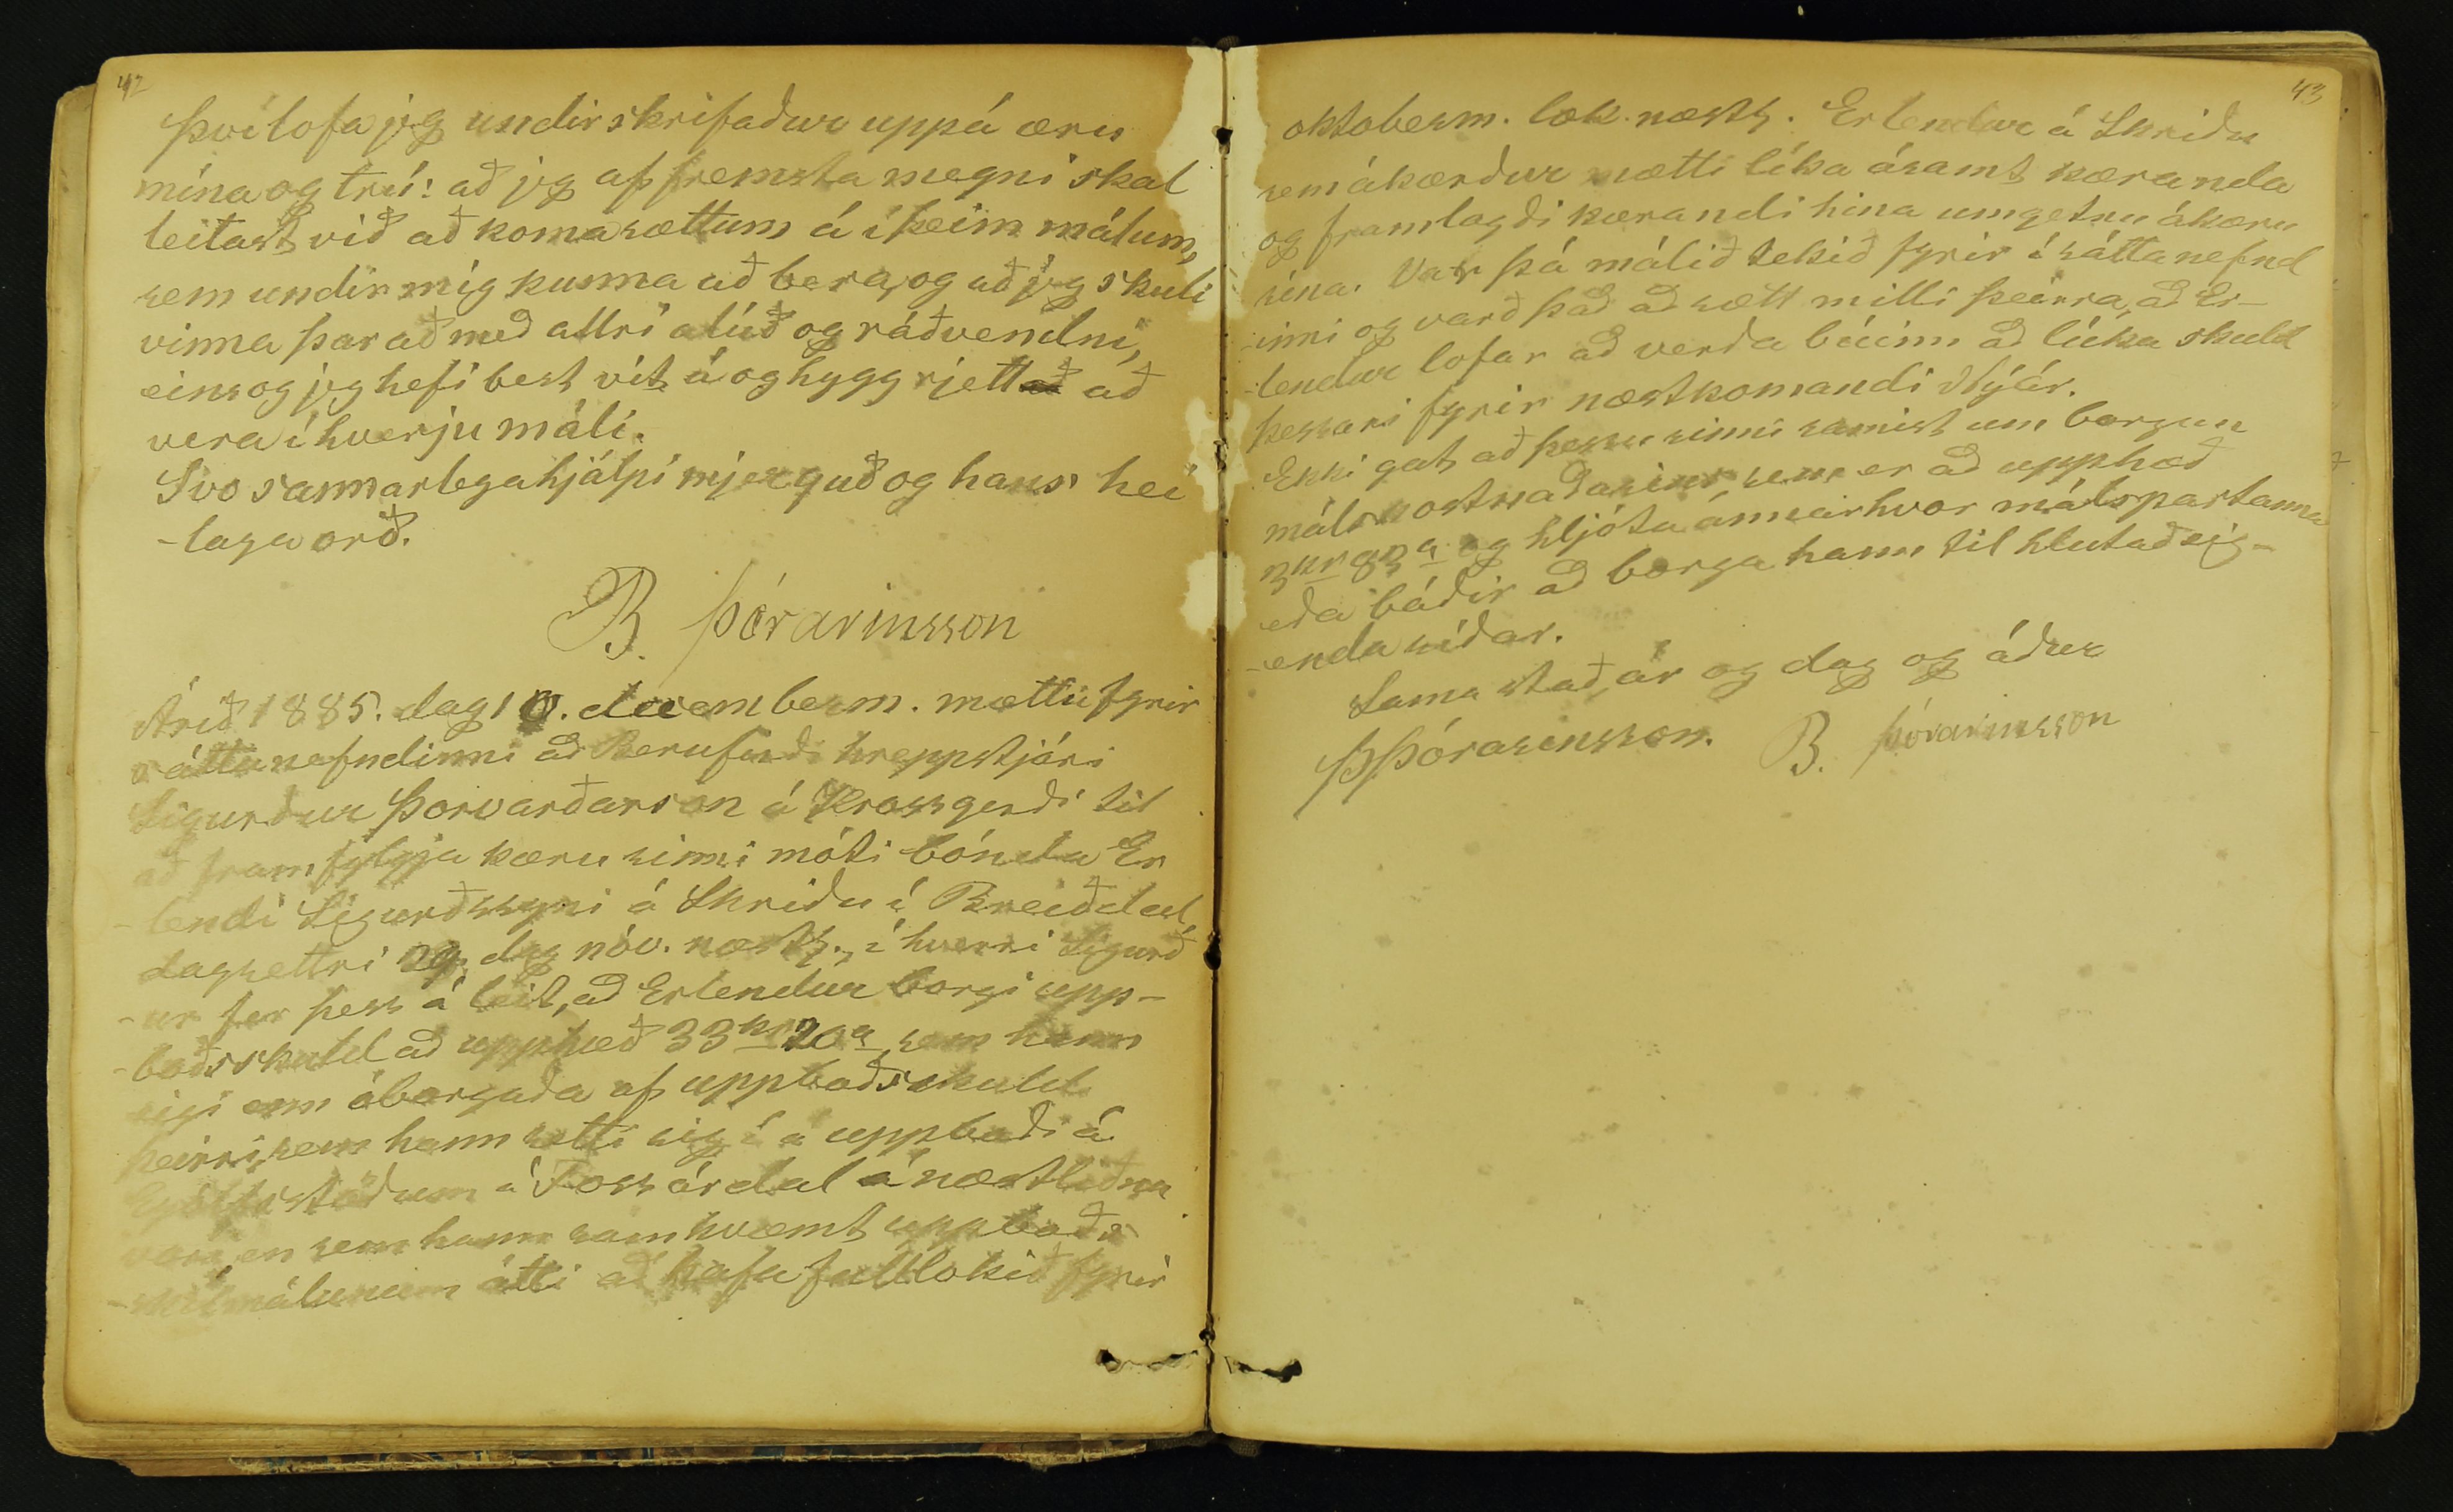 42
Því lofa jeg undirskrifaður uppá æru
mína og trú: að jeg af fremsta megni skal
leitast við að koma sættum á í þeim málum,
sem undir mig kunna að bera, og að jeg skuli
vinna þar að með allri alúð og ráðvendni,
eins og jeg hefi best vit á og hygg rjett að
vera í hverju máli.
Svo sannarlega hjálpi mjer guð og hans hei
-laga orð.
B. Þórarinsson
Árið 1885. dag 10. decemberm. mættu fyrir
sáttanefndinni að Berufirði hreppstjóri
Sigurður Þorvarðarson á Krossgerði til
að framfylgja kæru sinni móti bónda Er
-lendi Sigurðssyni á Skriðu í Breiðdal,
dagsettri 29. dag nóv. næstl., í hverri Sigurð
-ur fer þess á leit, að Erlendur borgi upp-
-boðsskuld að upphæð 33 kr 20 a, sem hann
eigi enn óborgaða af uppboðsskuld
þeirri, sem hann setti sig í á uppboði á
Eyjólfsstöðum í Fossárdal á næstliðnu
vori, en sem hann samkvæmt uppboðs
-skilmálunum átti að hafa fulllokið fyrir
43
oktoberm. lok næstl. Erlendur á Skriðu
sem ákærður mætti líka ásamt kæranda
og framlagði kærandi hina umgetnu ákæru
sína. Var þá málið tekið fyrir í sáttanefnd
-inni og varð það að sætt milli þeirra, að Er-
-lendur lofar að verða búinn að lúka skuld
þessari fyrir næstkomandi Nýár.
Ekki gat að þessu sinni samist um borgun
málskostnaðarins sem er að upphæð
3 kr 83 a og hljóta annairhvor málspartanna
eða báðir að borga hann til hlutaðeig-
-enda síðar.
Sama stað, ár og dag og áður
ÞÞórarinsson. B. Þórarinsson